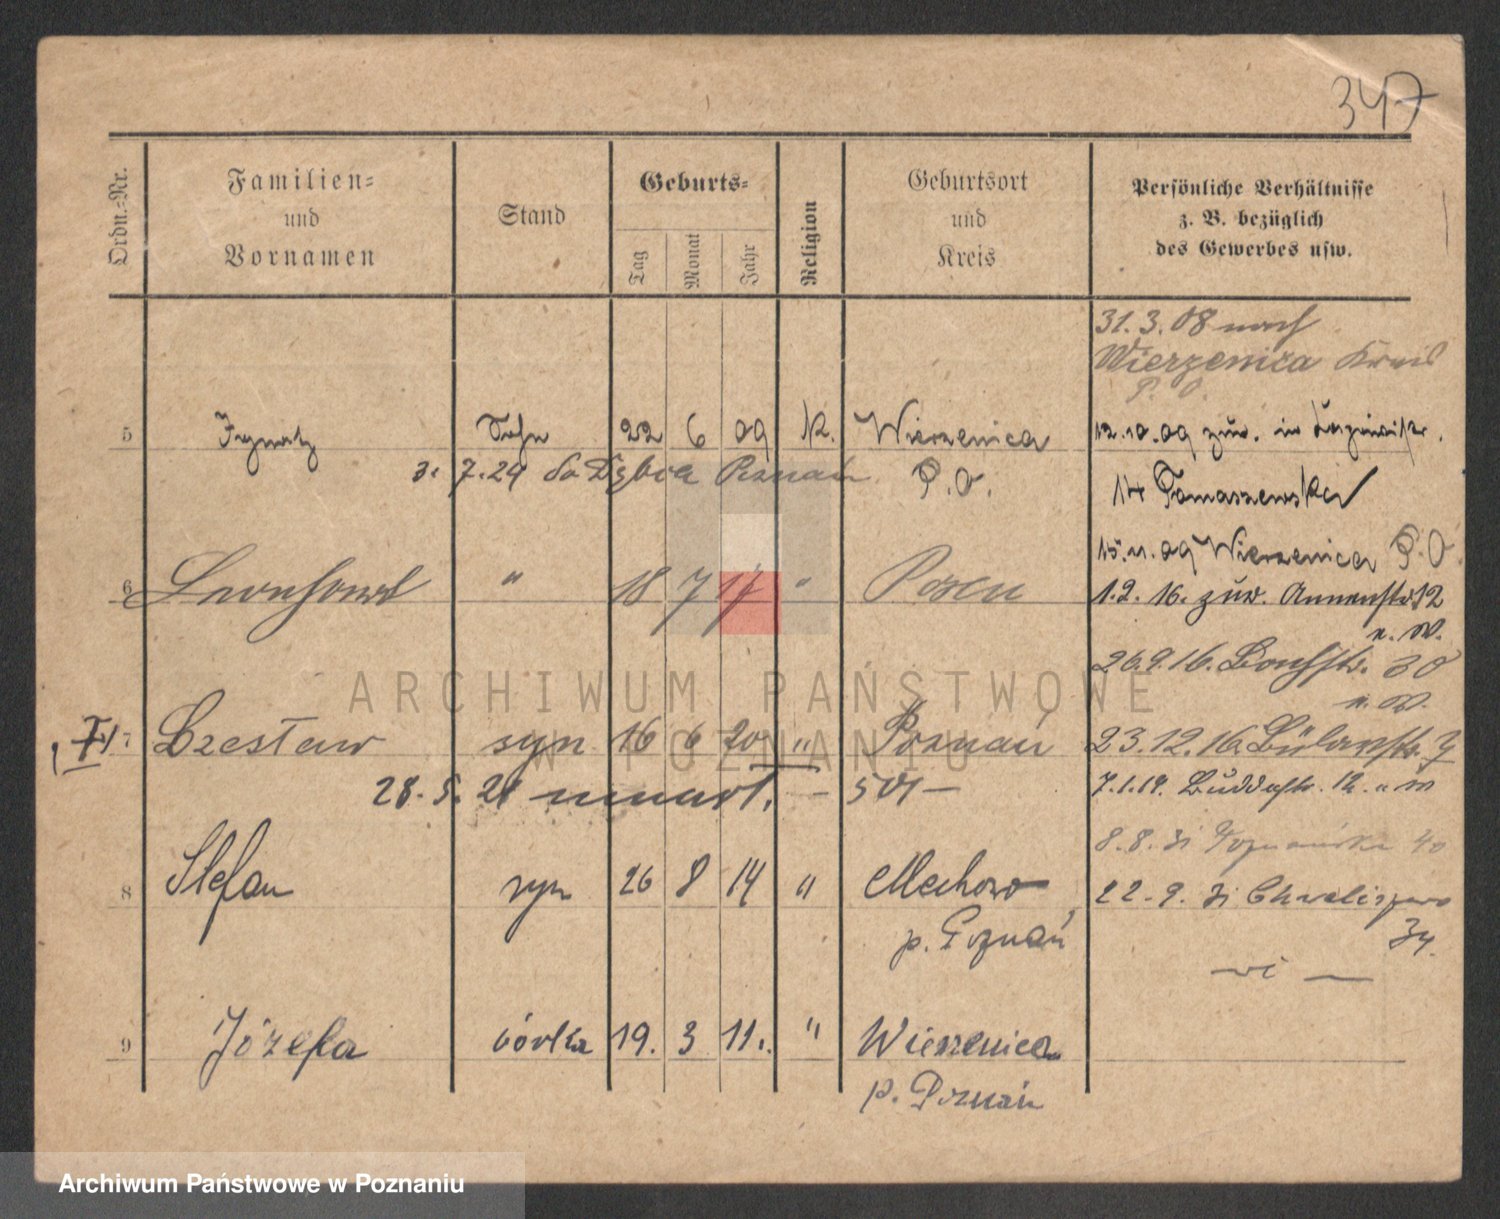 347
Ordn.-Nr.
Familien-
und
Vornamen
Stand
Geburts-
Tag
Monat
Jahr
Religion
Geburtsort
und
Kreis
Persönliche Verhältnisse
z. B. bezüglich
des Gewerbes usw.
31.3.08 nach
Wierzenica Kreis
P. O.
5 Ignatz Sohn 22 6 09 K. Wierzenica
P. O.
12.10.09 zuz. in
3. 7.29 do Dębca Poznań
14 Tomaszewski
15.11.09 Wierzenica P.O
6 Leonhard " 18 7 17 " Posen
1.2.16. zuz. Annenstr 12
n. W.
26.9.16. 30
n. W.
7 Czesław syn 16 6 20 " Poznań
23.12.16. Bülowstr. 7
28. 5. 21 umarł.
7.1.19. Buddestr. 12. n W
8.8.31 Poznańska 40
8 Stefan syn 26 8 14 " Mechowo
p. Poznań
22.9.31 Chwaliszewo
34.
9 Józefa córka 19. 3 11. " Wierzenica
p. Poznań
ARCHIWUM PAŃSTWOWE
W POZNANIU
Archiwum Państwowe w Poznaniu